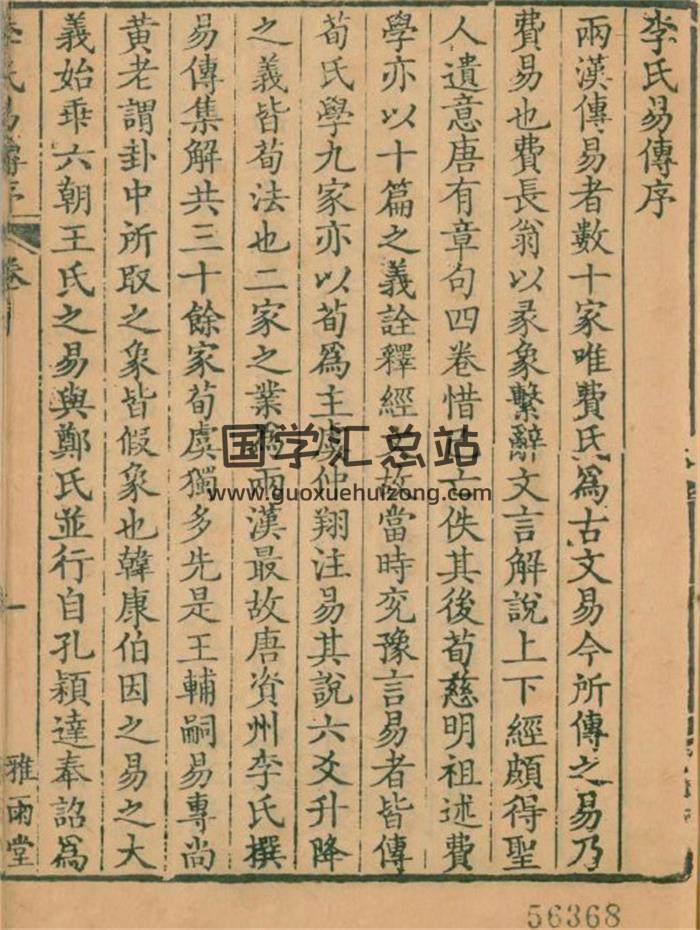 李氏易傳序
兩漢傳易者數十家唯費氏爲古文易今所傳之易乃
費易也費長翁以彖象繫辭文言解說上下經頗得聖
人遺意唐有章句四卷惜已亡佚其後荀慈明祖述費
學亦以十篇之義詮釋經文故當時兗豫言易者皆傳
荀氏學九家亦以荀爲主虞仲翔注易其說六爻升降
之義皆荀法也二家之業爲兩漢最故唐資州李氏撰
易傳集解共三十餘家荀虞獨多先是王輔嗣易專尚
黃老謂卦中所取之象皆假象也韓康伯因之易之大
義始乖六朝王氏之易與鄭氏並行自孔穎達奉詔爲
李氏易傳序
一
雅雨堂
国学汇总站
www.guoxuehuizong.com
56368